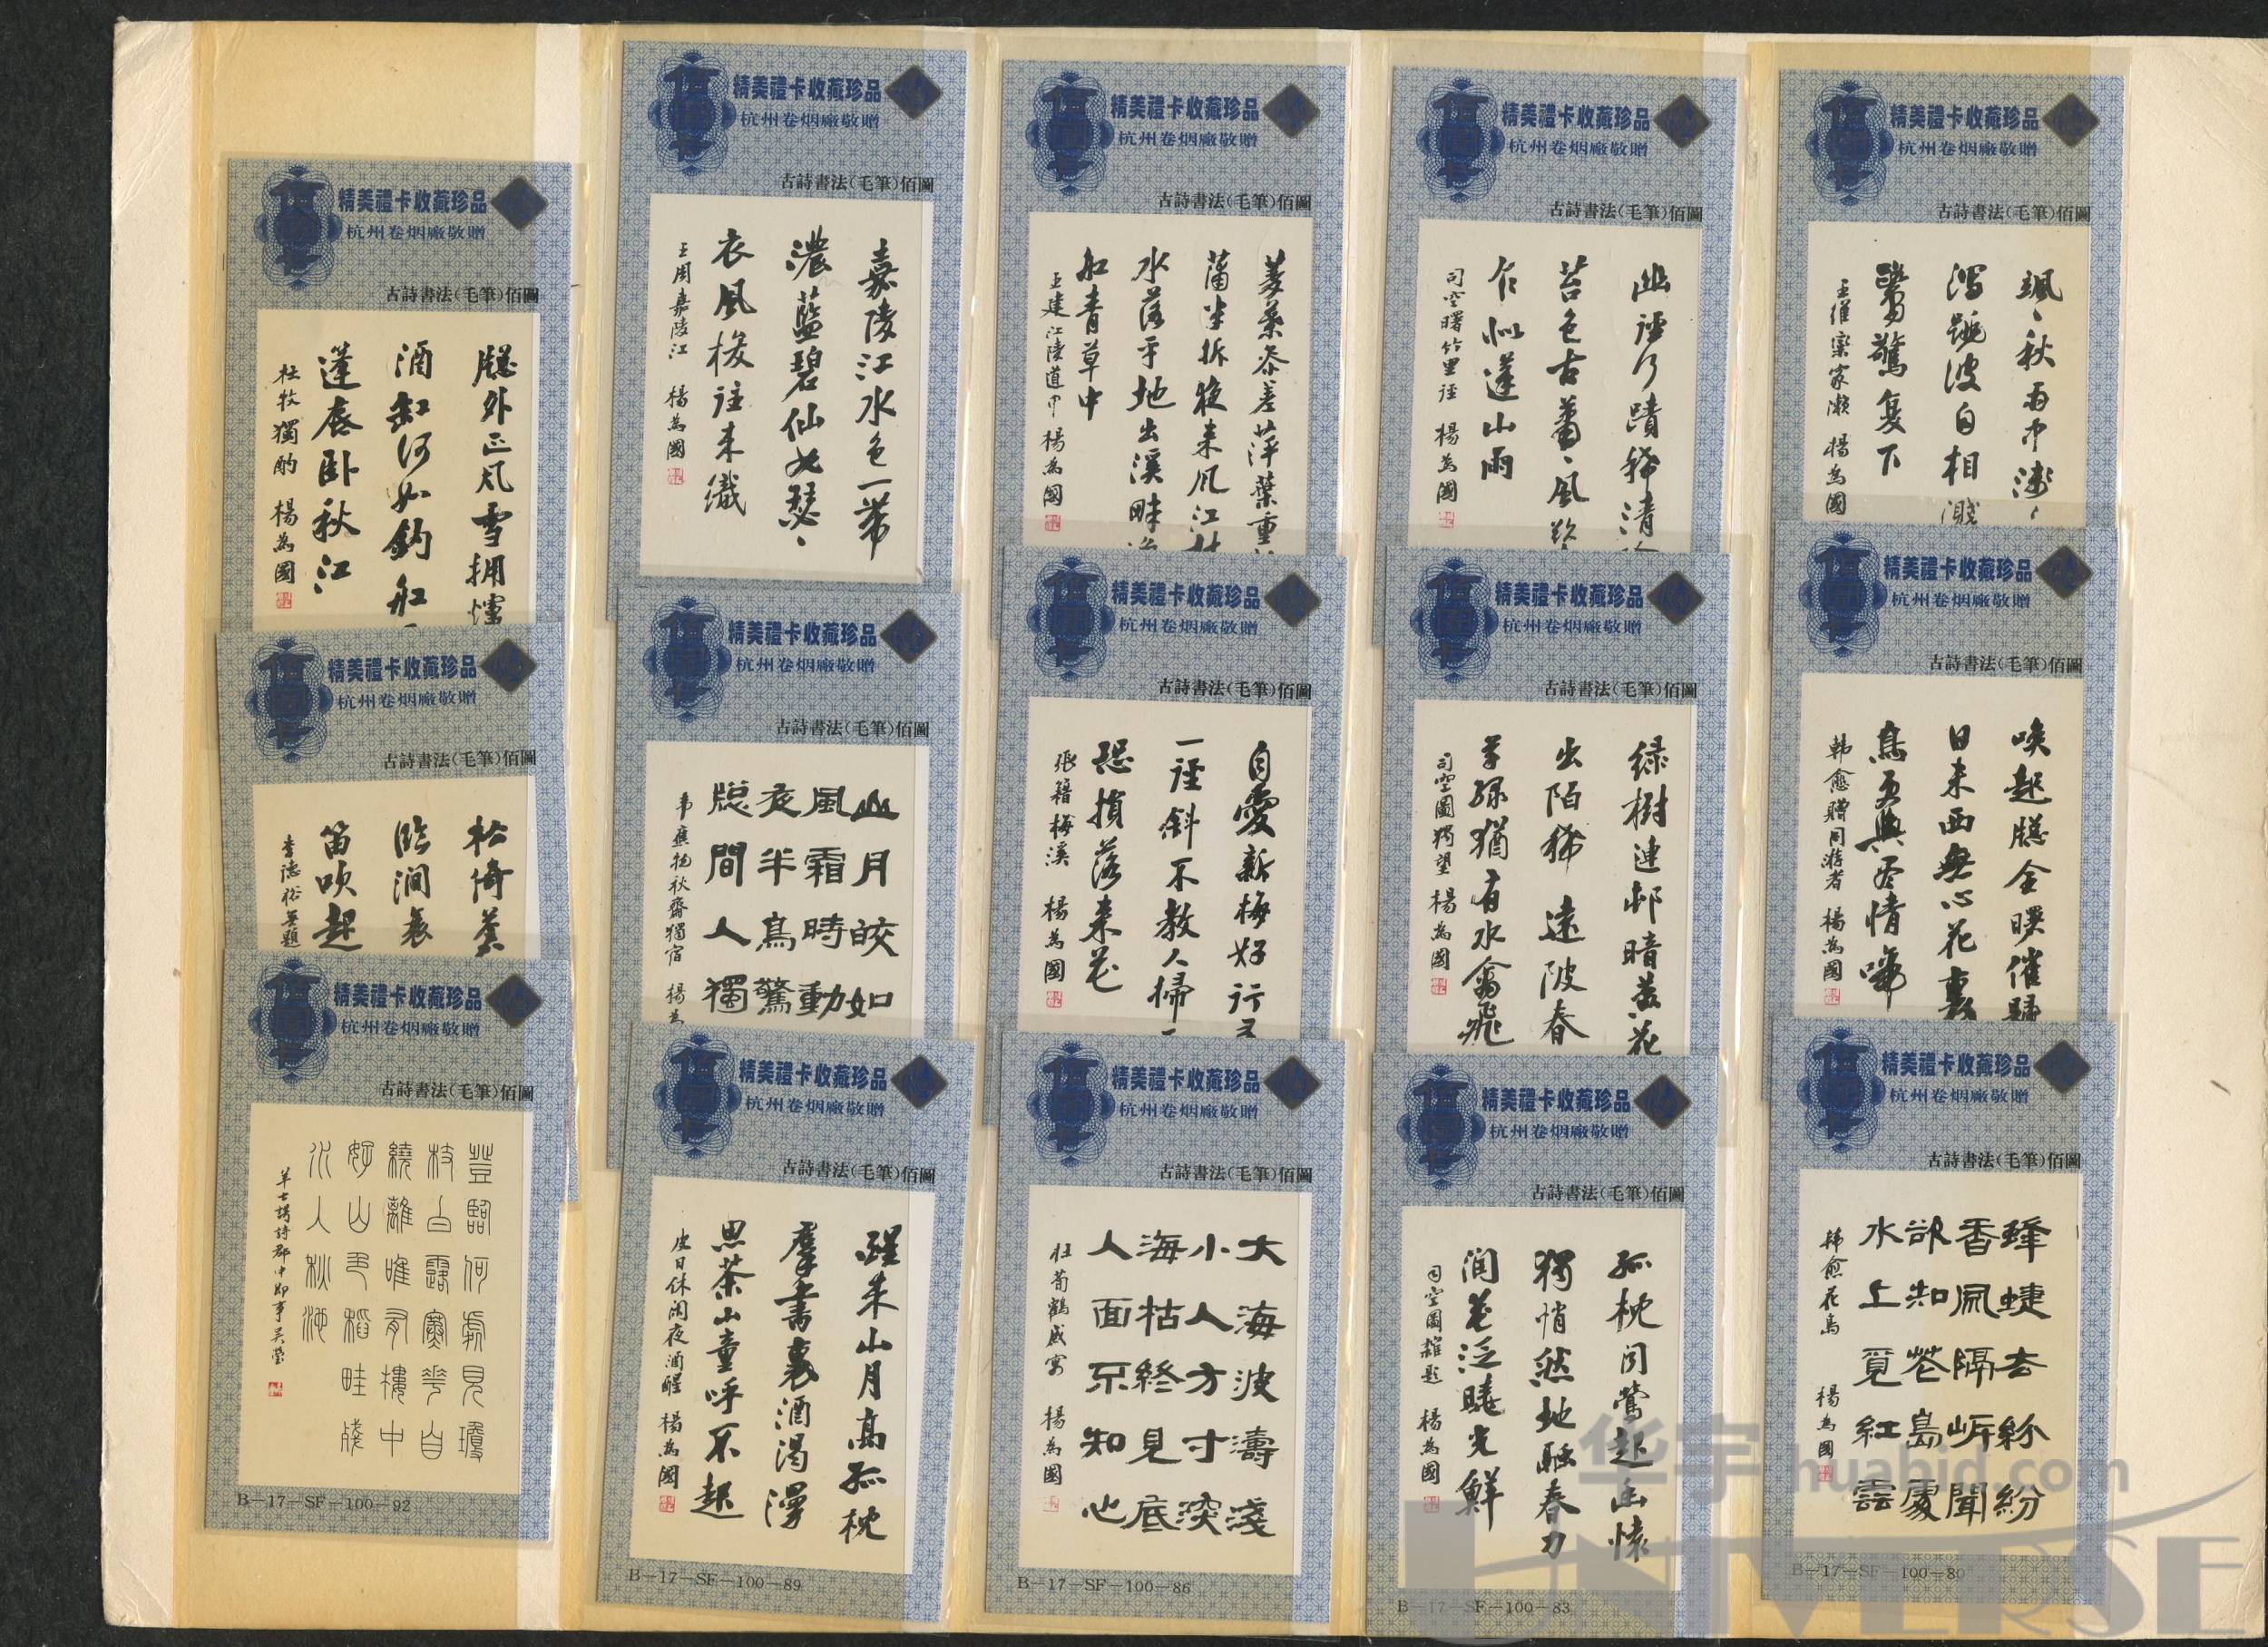 精美禮卡收藏珍品
杭州卷烟廠敬贈
古詩書法(毛筆)佰圖
牕外正風雪擁爐
酒缸何如釣船
蓬底卧秋江
杜牧獨酌 楊為國
精美禮卡收藏珍品
杭州卷烟廠敬贈
古詩書法(毛筆)佰圖
松倚蓋
臨澗
笛吹起
李德裕無題
精美禮卡收藏珍品
杭州卷烟廠敬贈
古詩書法(毛筆)佰圖
登臨何處見瓊
枝白露寒花自
繞籬唯有樓中
好山色稻畦殘
水入秋池
羊士諤詩郡中即事吴瑩
B-17-SF-100-92
精美禮卡收藏珍品
杭州卷烟廠敬贈
古詩書法(毛筆)佰圖
嘉陵江水色一帶
濃藍碧仙女瑟、
衣風梭往来織
王周嘉陵江 楊為國
精美禮卡收藏珍品
杭州卷烟廠敬贈
古詩書法(毛筆)佰圖
山月皎如
風霜時動
夜半鳥驚
牕間人獨
韦應物秋齋獨宿 楊為
精美禮卡收藏珍品
杭州卷烟廠敬贈
古詩書法(毛筆)佰圖
醒来山月高孤枕
羣書裏酒渴漫
思茶山童呼不起
皮日休闲夜酒醒 楊為國
B-17-SF-100-89
精美禮卡收藏珍品
杭州卷烟廠敬贈
古詩書法(毛筆)佰圖
菱葉參差萍葉重
蒲半折夜来风江村
水落平地出溪畔
船青草中
王建江陵道中 楊為國
精美禮卡收藏珍品
杭州卷烟廠敬贈
古詩書法(毛筆)佰圖
自愛新梅好行尋
一徑斜不教人掃
恐損落来花
張籍梅溪 楊為國
精美禮卡收藏珍品
杭州卷烟廠敬贈
古詩書法(毛筆)佰圖
大海波濤淺
小人方寸深
海枯終見底
人面不知心
杜荀鶴感寓 楊為國
B-17-SF-100-86
精美禮卡收藏珍品
杭州卷烟廠敬贈
古詩書法(毛筆)佰圖
幽徑行蹟稀清陰
苔色古蕭、風欲
乍似蓬山雨
司空曙竹里徑 楊為國
精美禮卡收藏珍品
杭州卷烟廠敬贈
古詩書法(毛筆)佰圖
绿樹連邨暗黃花
出陌稀遠陂春
草绿猶有水禽飛
司空圖獨望 楊為國
精美禮卡收藏珍品
杭州卷烟廠敬贈
古詩書法(毛筆)佰圖
孤枕闻鶯起幽懷
獨悄然地融春力
润花泛曉光鮮
司空圖雜題 楊為國
B-17-SF-100-83
精美禮卡收藏珍品
杭州卷烟廠敬贈
古詩書法(毛筆)佰圖
颯、秋雨中淺、
瀉跳波自相濺
鷺驚复下
王維欒家瀨 楊為國
精美禮卡收藏珍品
杭州卷烟廠敬贈
古詩書法(毛筆)佰圖
唤起牕全曙催歸
日未西無心花裏
鳥更與尽情啼
韩愈贈同游者 楊為國
精美禮卡收藏珍品
杭州卷烟廠敬贈
古詩書法(毛筆)佰圖
蜂蜨去紛紛
香風隔岸聞
欲知花島處
水上覓紅雲
韩愈花島 楊為國
B-17-SF-100-80
华宇 huabid.com
UNIVERSE